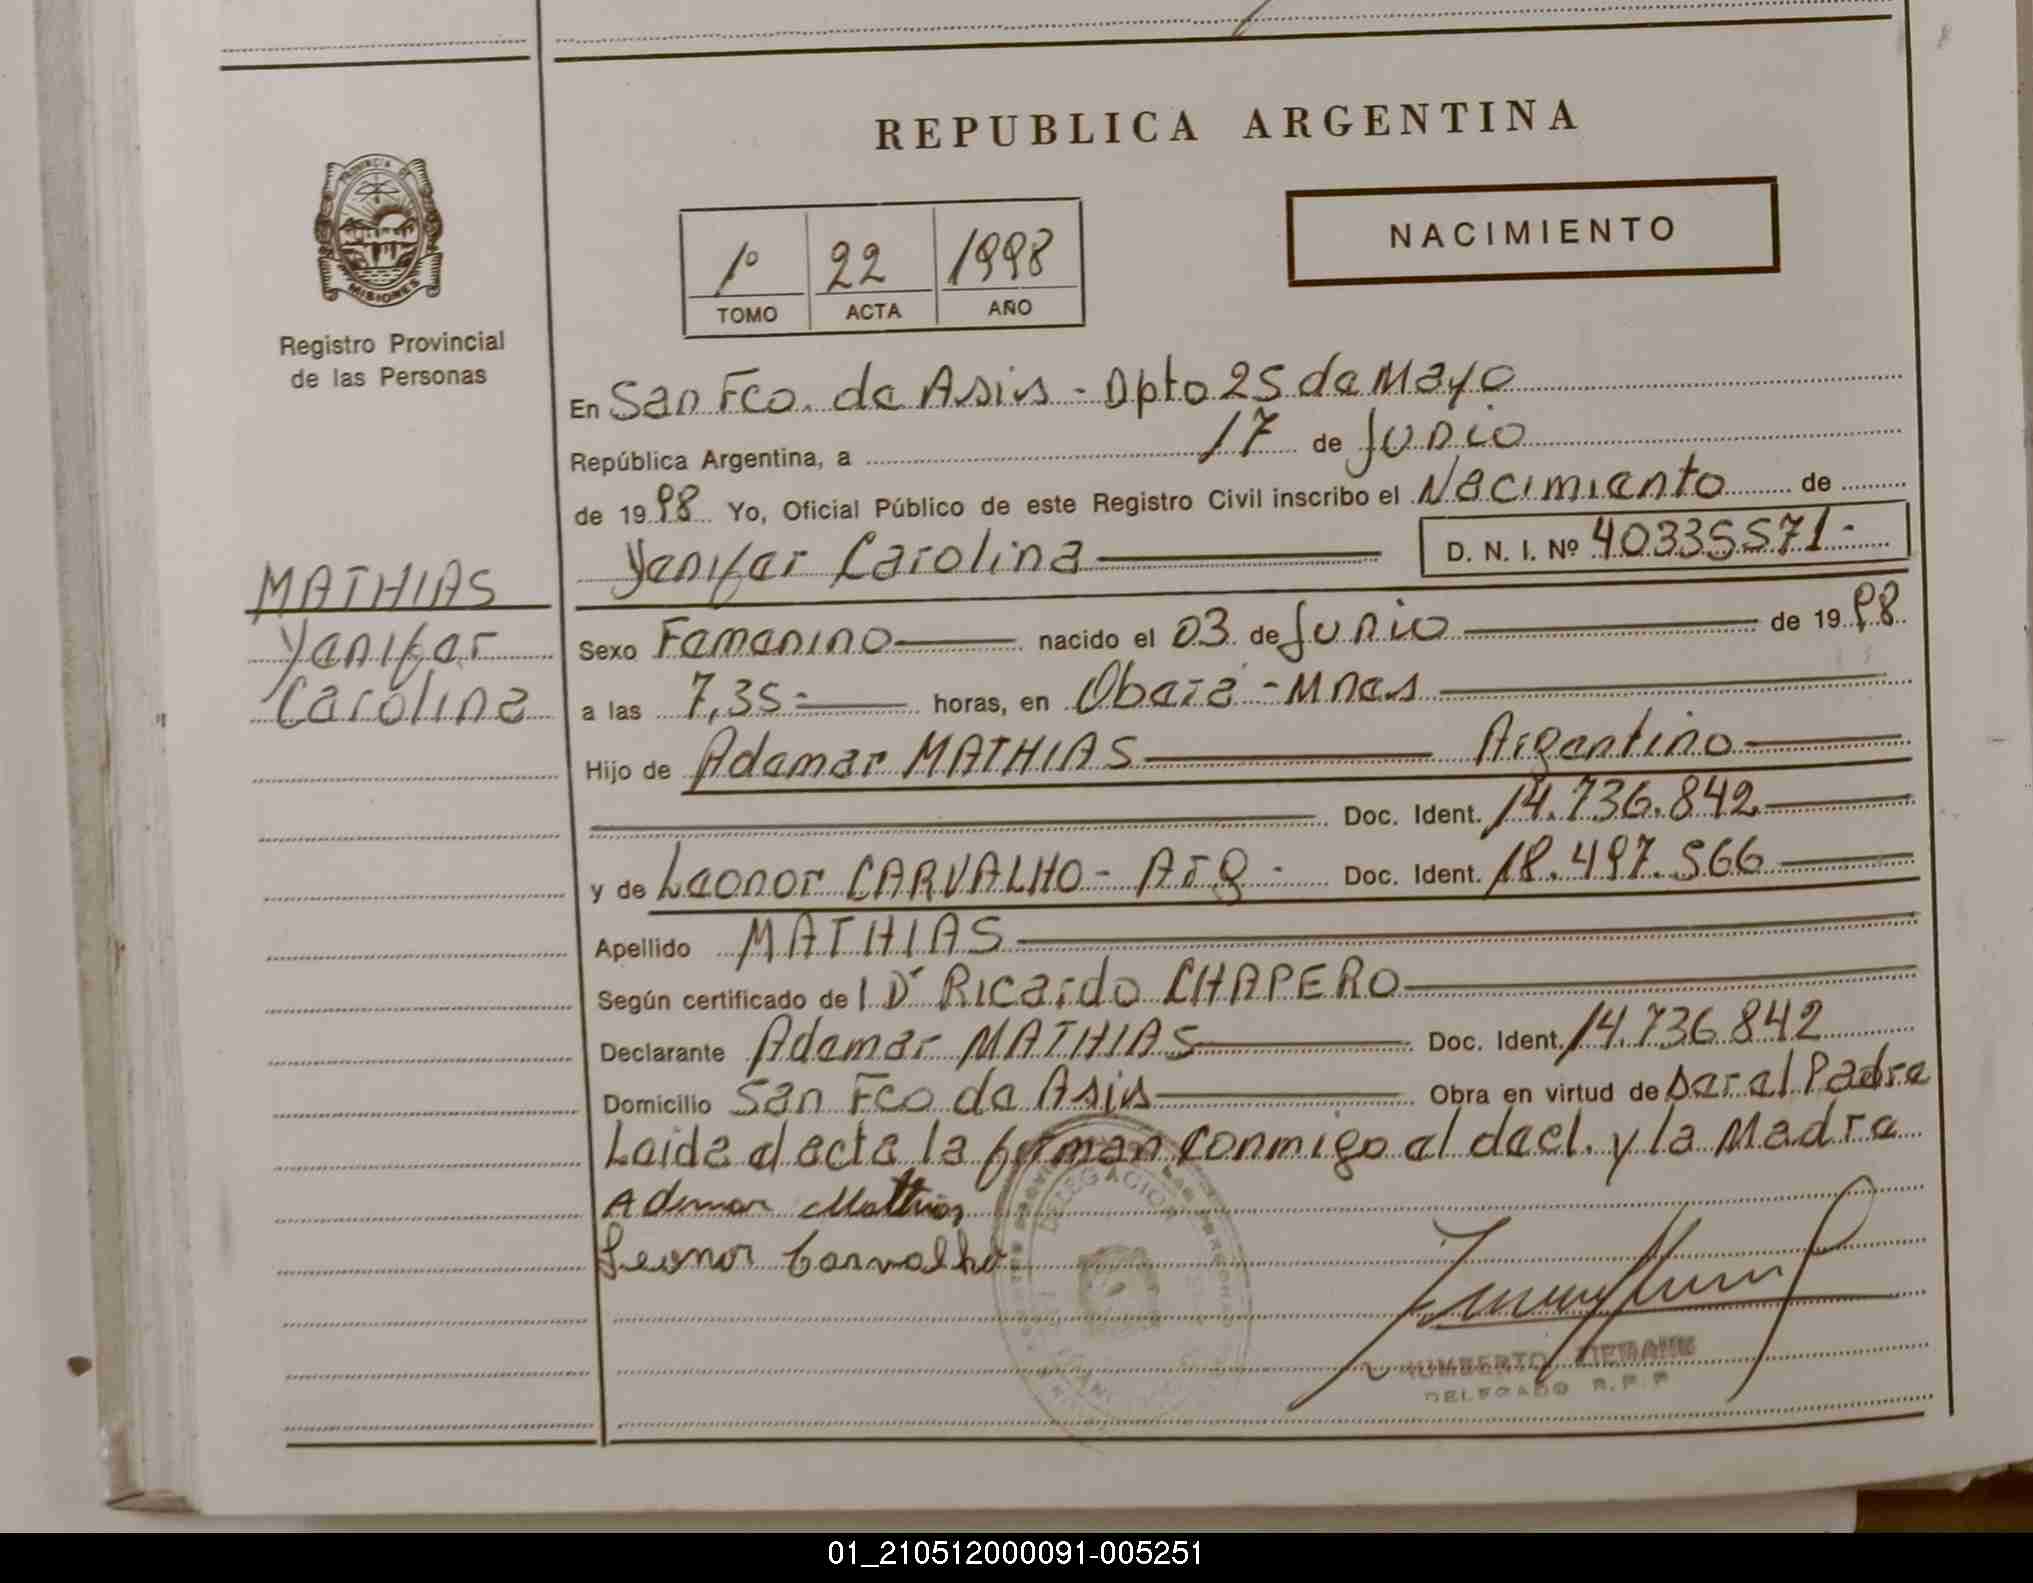 REPUBLICA ARGENTINA
PROVINCIA DE
MISIONES
Registro Provincial
de las Personas
1º 22 1998
TOMO ACTA AÑO
NACIMIENTO
En San Fco. de Asis - Dpto 25 de Mayo
República Argentina, a 17 de Junio
de 1998 Yo, Oficial Público de este Registro Civil inscribo el Nacimiento de
Yenifer Carolina D. N. I. Nº 40335571-
MATHIAS
Yenifer
Carolina
Sexo Femenino nacido el 03 de Junio de 1998
a las 7,35- horas, en Oberá - Mnes
Hijo de Ademar MATHIAS Argentino
Doc. Ident. 14.736.842
y de Leonor CARVALHO - Arg - Doc. Ident. 18.497.566
Apellido MATHIAS
Según certificado del Dr Ricardo CHAPERO
Declarante Ademar MATHIAS Doc. Ident. 14.736.842
Domicilio San Fco de Asis Obra en virtud de ser el Padre
Leida el acta la firman conmigo el decl. y la Madre
Ademar Mathias
Leonor Carvalho
DELEGACION
HUMBERTO
DELEGADO R.P.P
01_210512000091-005251